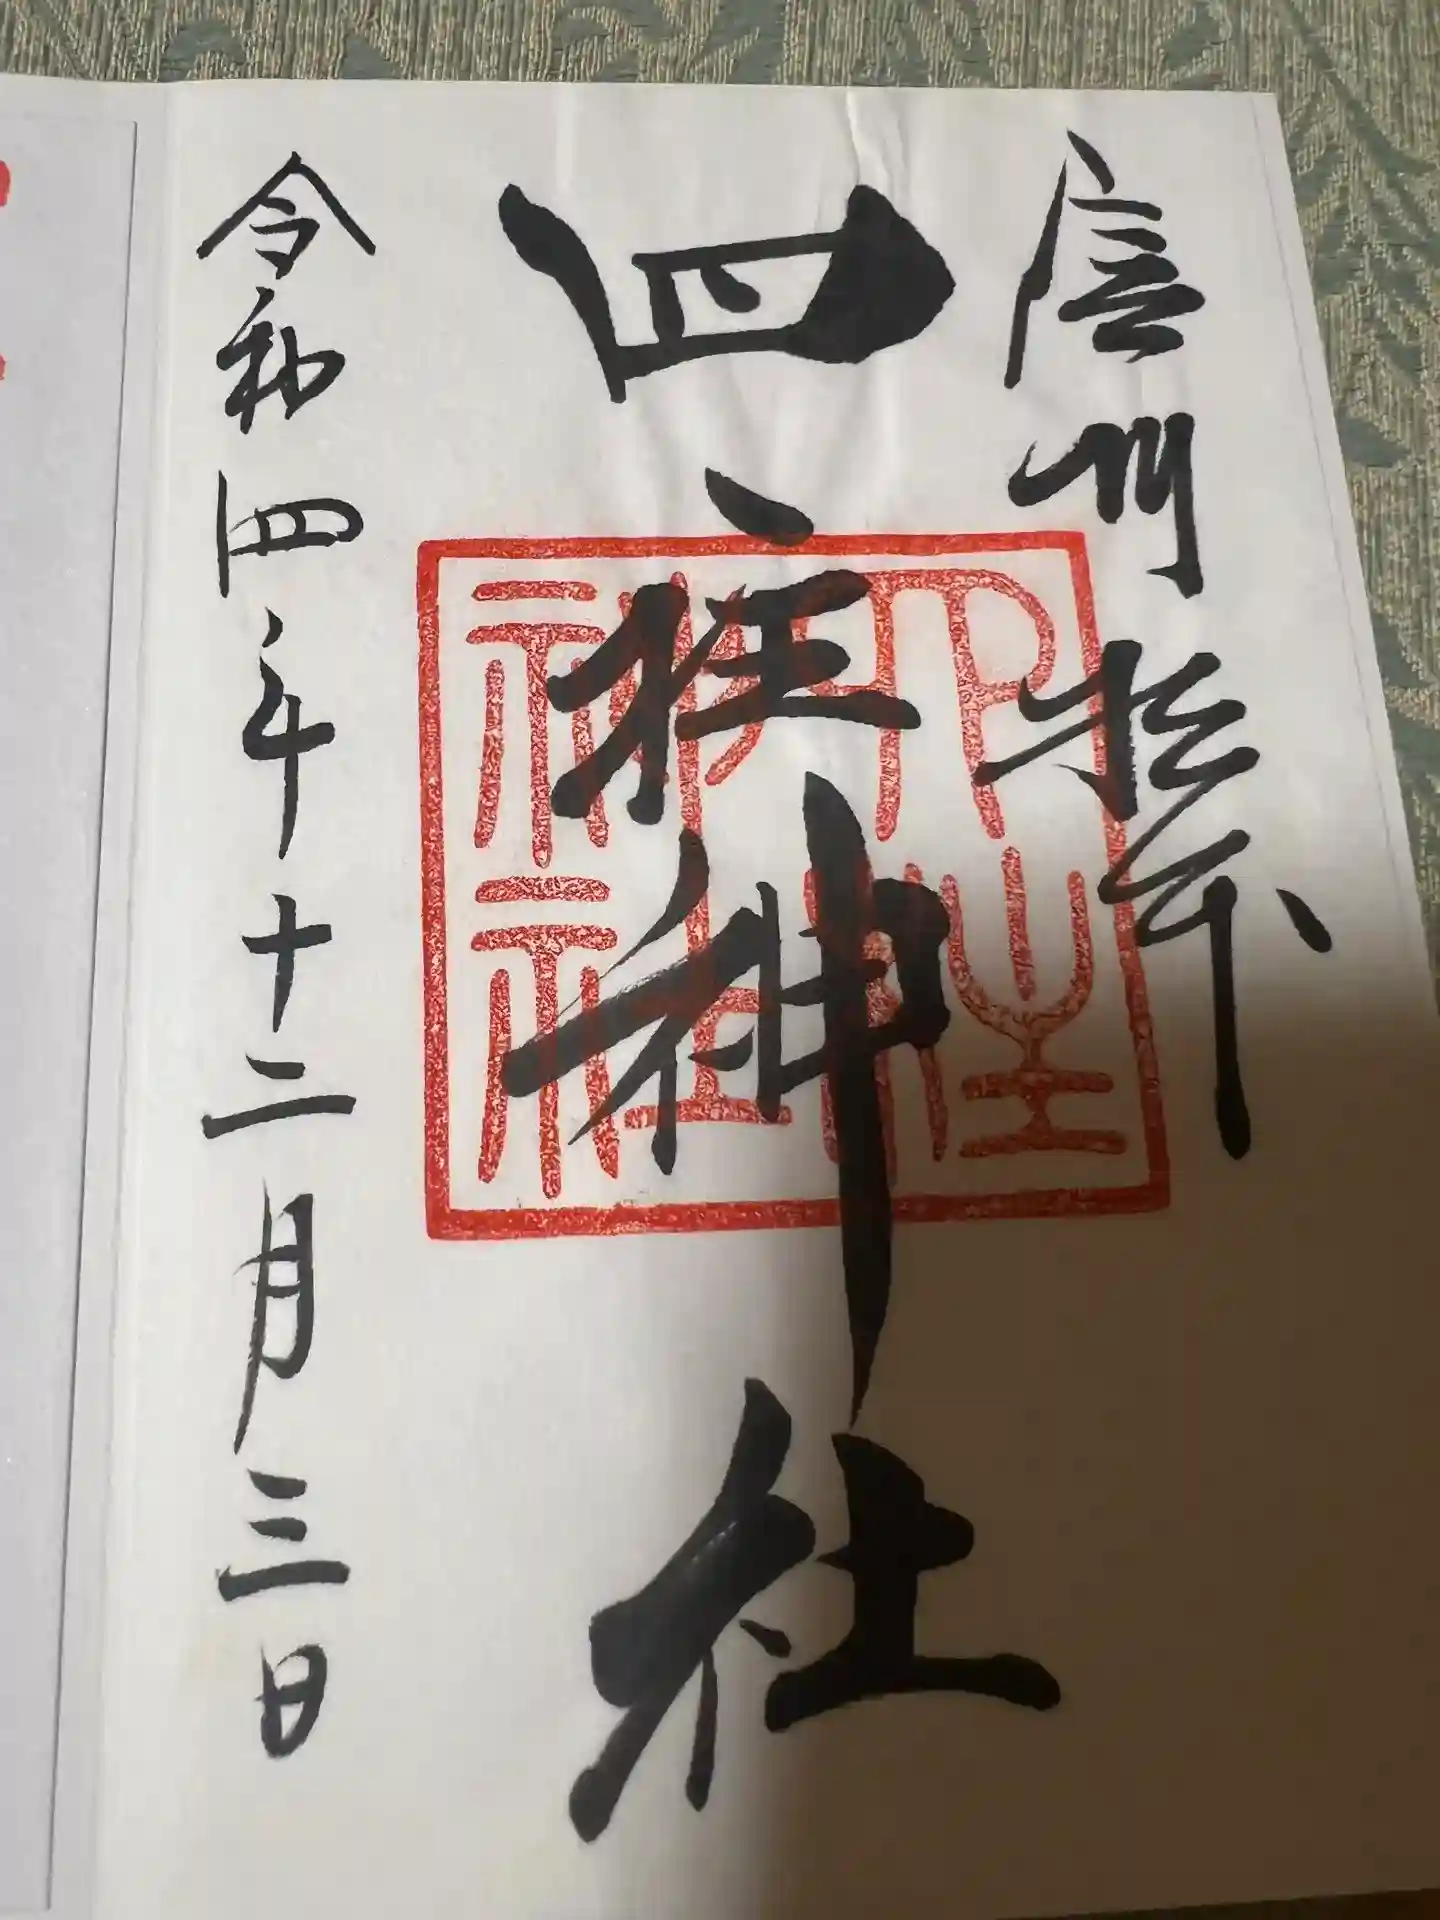 信州松本
四柱神社
四柱神社
令和四年十二月三日